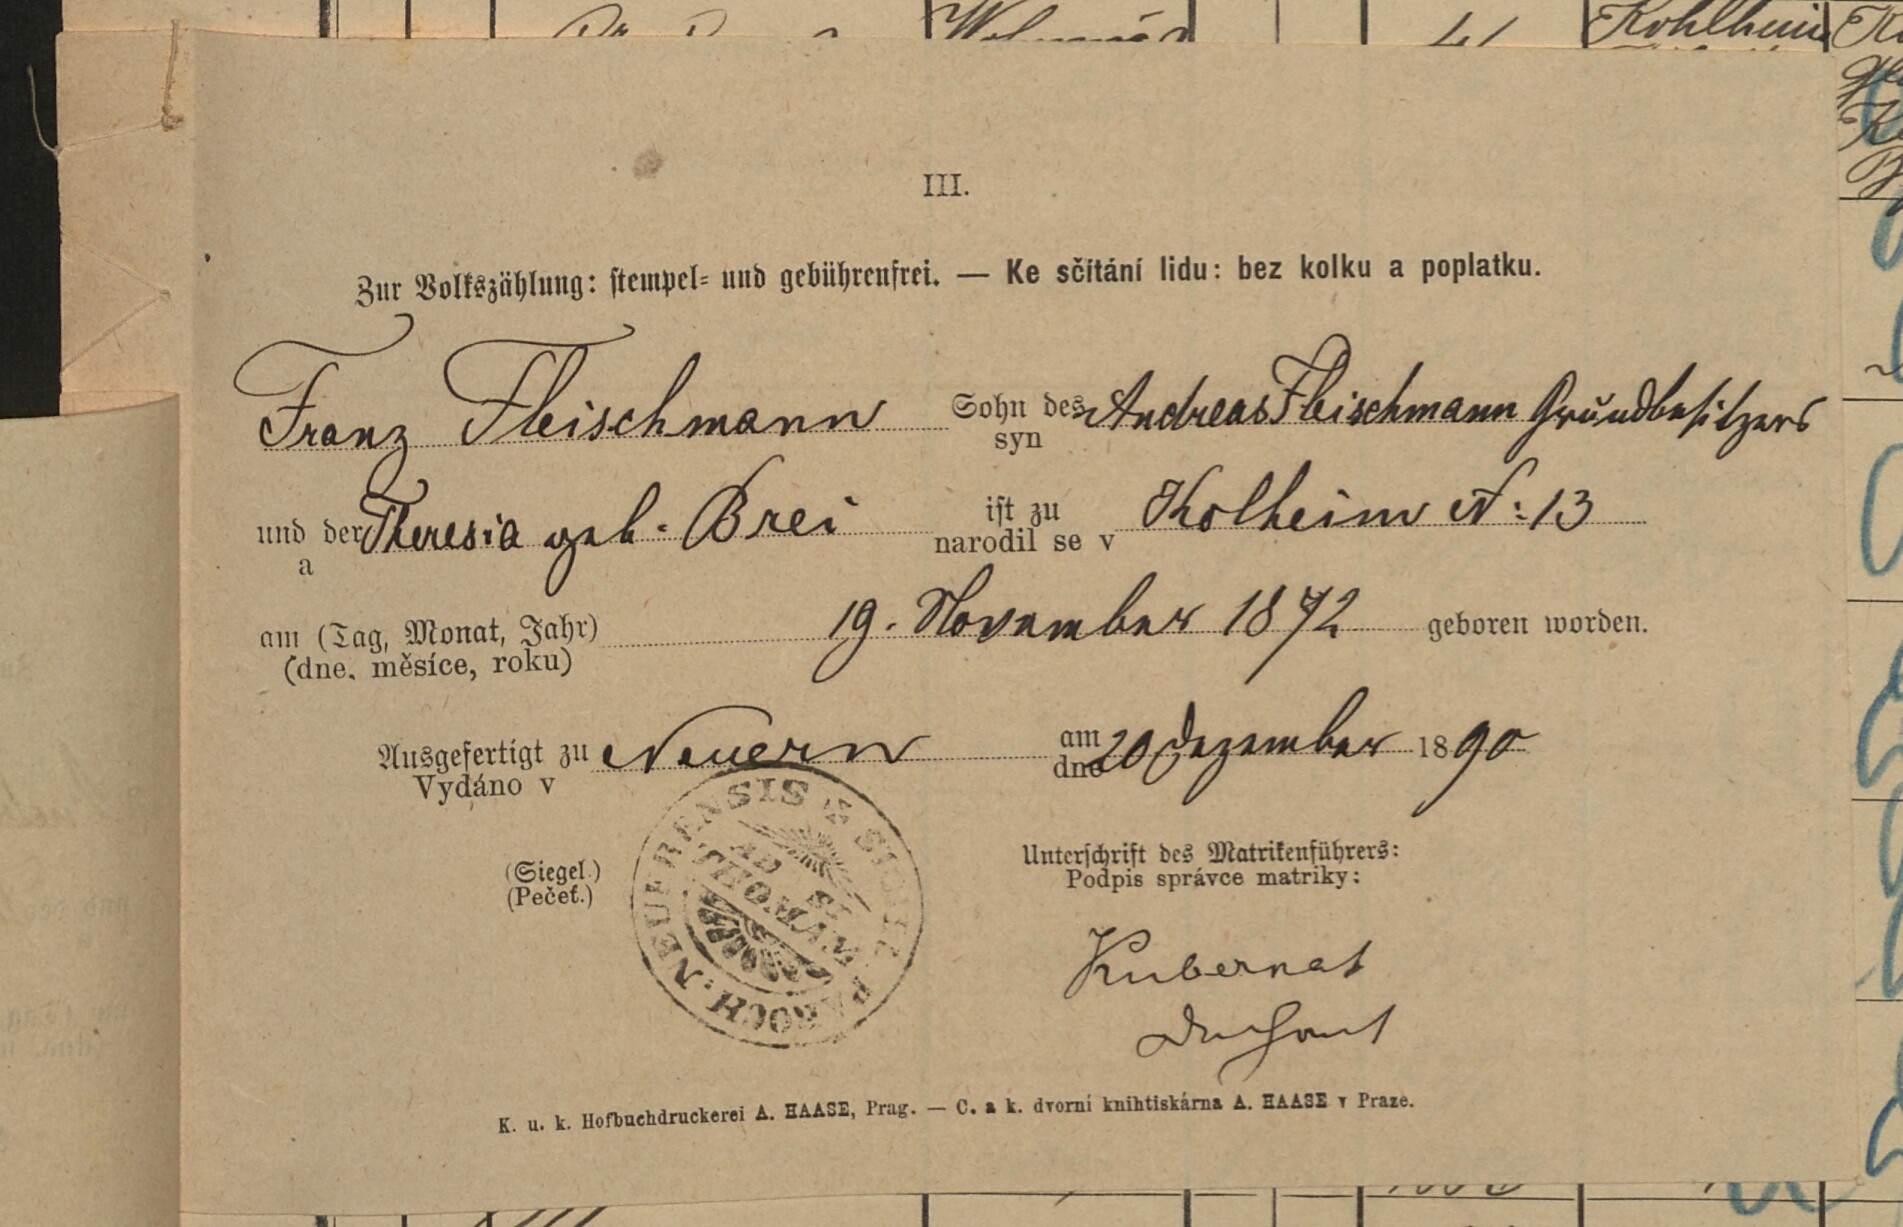 Kohlheim
III.
Zur Volkszählung: stempel- und gebührenfrei. — Ke sčítání lidu: bez kolku a poplatku.
Franz Fleischmann Sohn des Andreas Fleischmann Grundbesitzers
syn
und der Theresia geb. Brei ist zu Kolheim N: 13
a narodil se v
am (Tag, Monat, Jahr) 19. November 1872 geboren worden.
(dne, měsíce, roku)
Ausgefertigt zu Neuern am 20 Dezember 1890
Vydáno v dne
(Siegel.)
(Pečeť.)
SIGILL. PAROCH. NEUERENSIS
AD S.
THOMAM
Unterschrift des Matrikenführers:
Podpis správce matriky:
Kubernat
K. u. k. Hofbuchdruckerei A. HAASE, Prag. — C. a k. dvorní knihtiskárna A. HAASE v Praze.